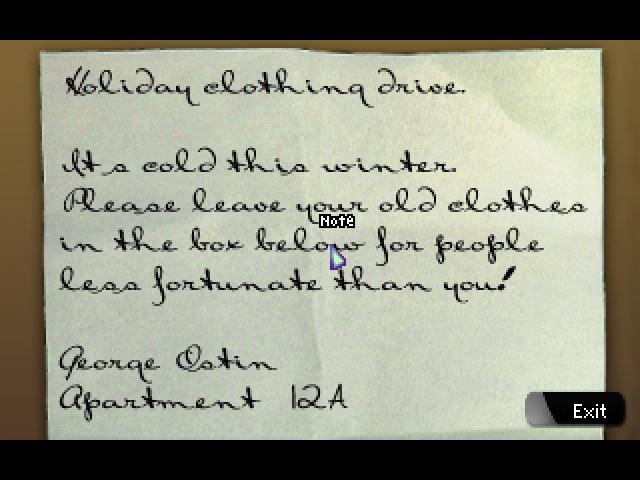 Holiday clothing drive.
It s cold this winter.
Please leave your old clothes
Note
in the box below for people
less fortunate than you!
George Ostin
Apartment 12A
Exit